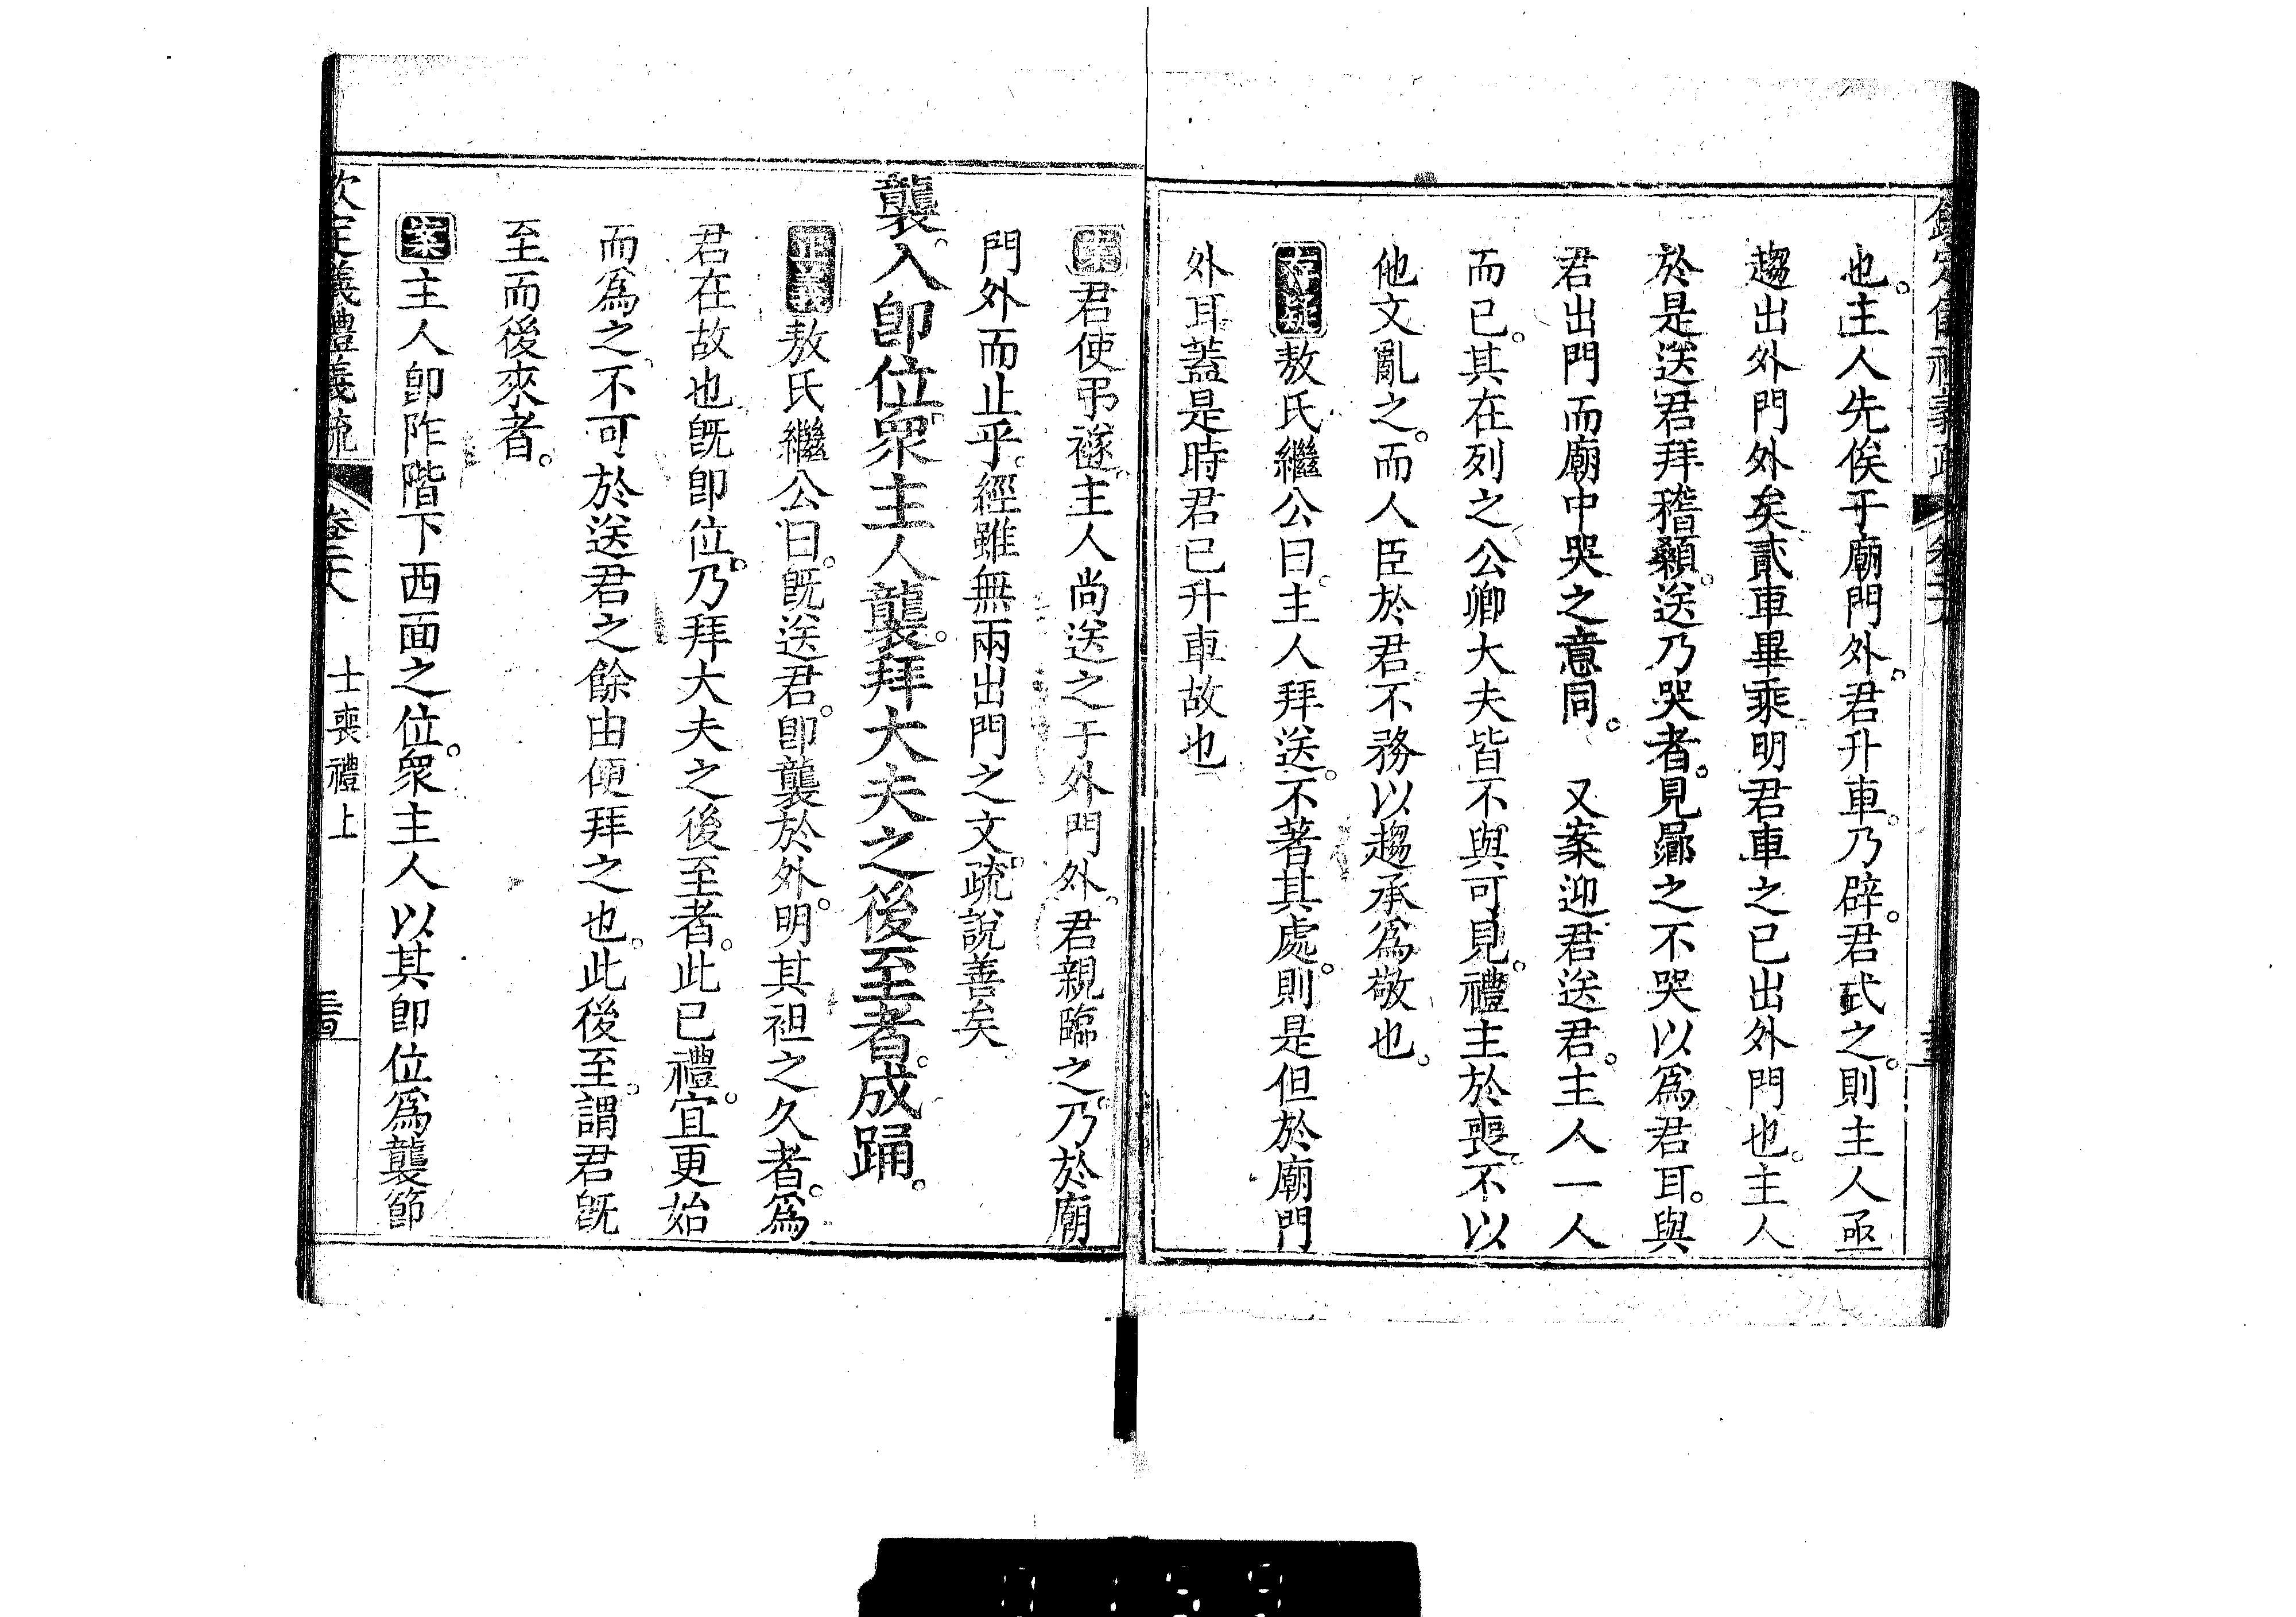 也。主人先俟于廟門外。君升車。乃辟。君式之。則主人亟
趨出外門外矣。貳車畢乘。明君車之已出外門也。主人
於是送君拜稽顙。送乃哭者。見曏之不哭以爲君耳。與
君出門而廟中哭之意同。 又案迎君送君。主人一人
而已。其在列之公卿大夫皆不與可見。禮主於喪。不以
他文亂之。而人臣於君。不務以趨承爲敬也。
存疑敖氏繼公曰。主人拜送。不著其處。則是但於廟門
外耳。蓋是時君已升車故也
案君使弔襚。主人尚送之于外門外。君親臨之。乃於廟
門外而止乎。經雖無兩出門之文。疏說善矣。
襲。入卽位。眾主人襲。拜大夫之後至者。成踊。
正義敖氏繼公曰。旣送君。卽襲於外。明其袒之久者。爲
君在故也。旣卽位。乃拜大夫之後至者。此已禮。宜更始
而爲之。不可於送君之餘由便拜之也。此後至。謂君旣
至而後來者。
案主人卽阼階下西面之位。眾主人以其卽位爲襲節
欽定儀禮義疏 卷二十八 士喪禮上